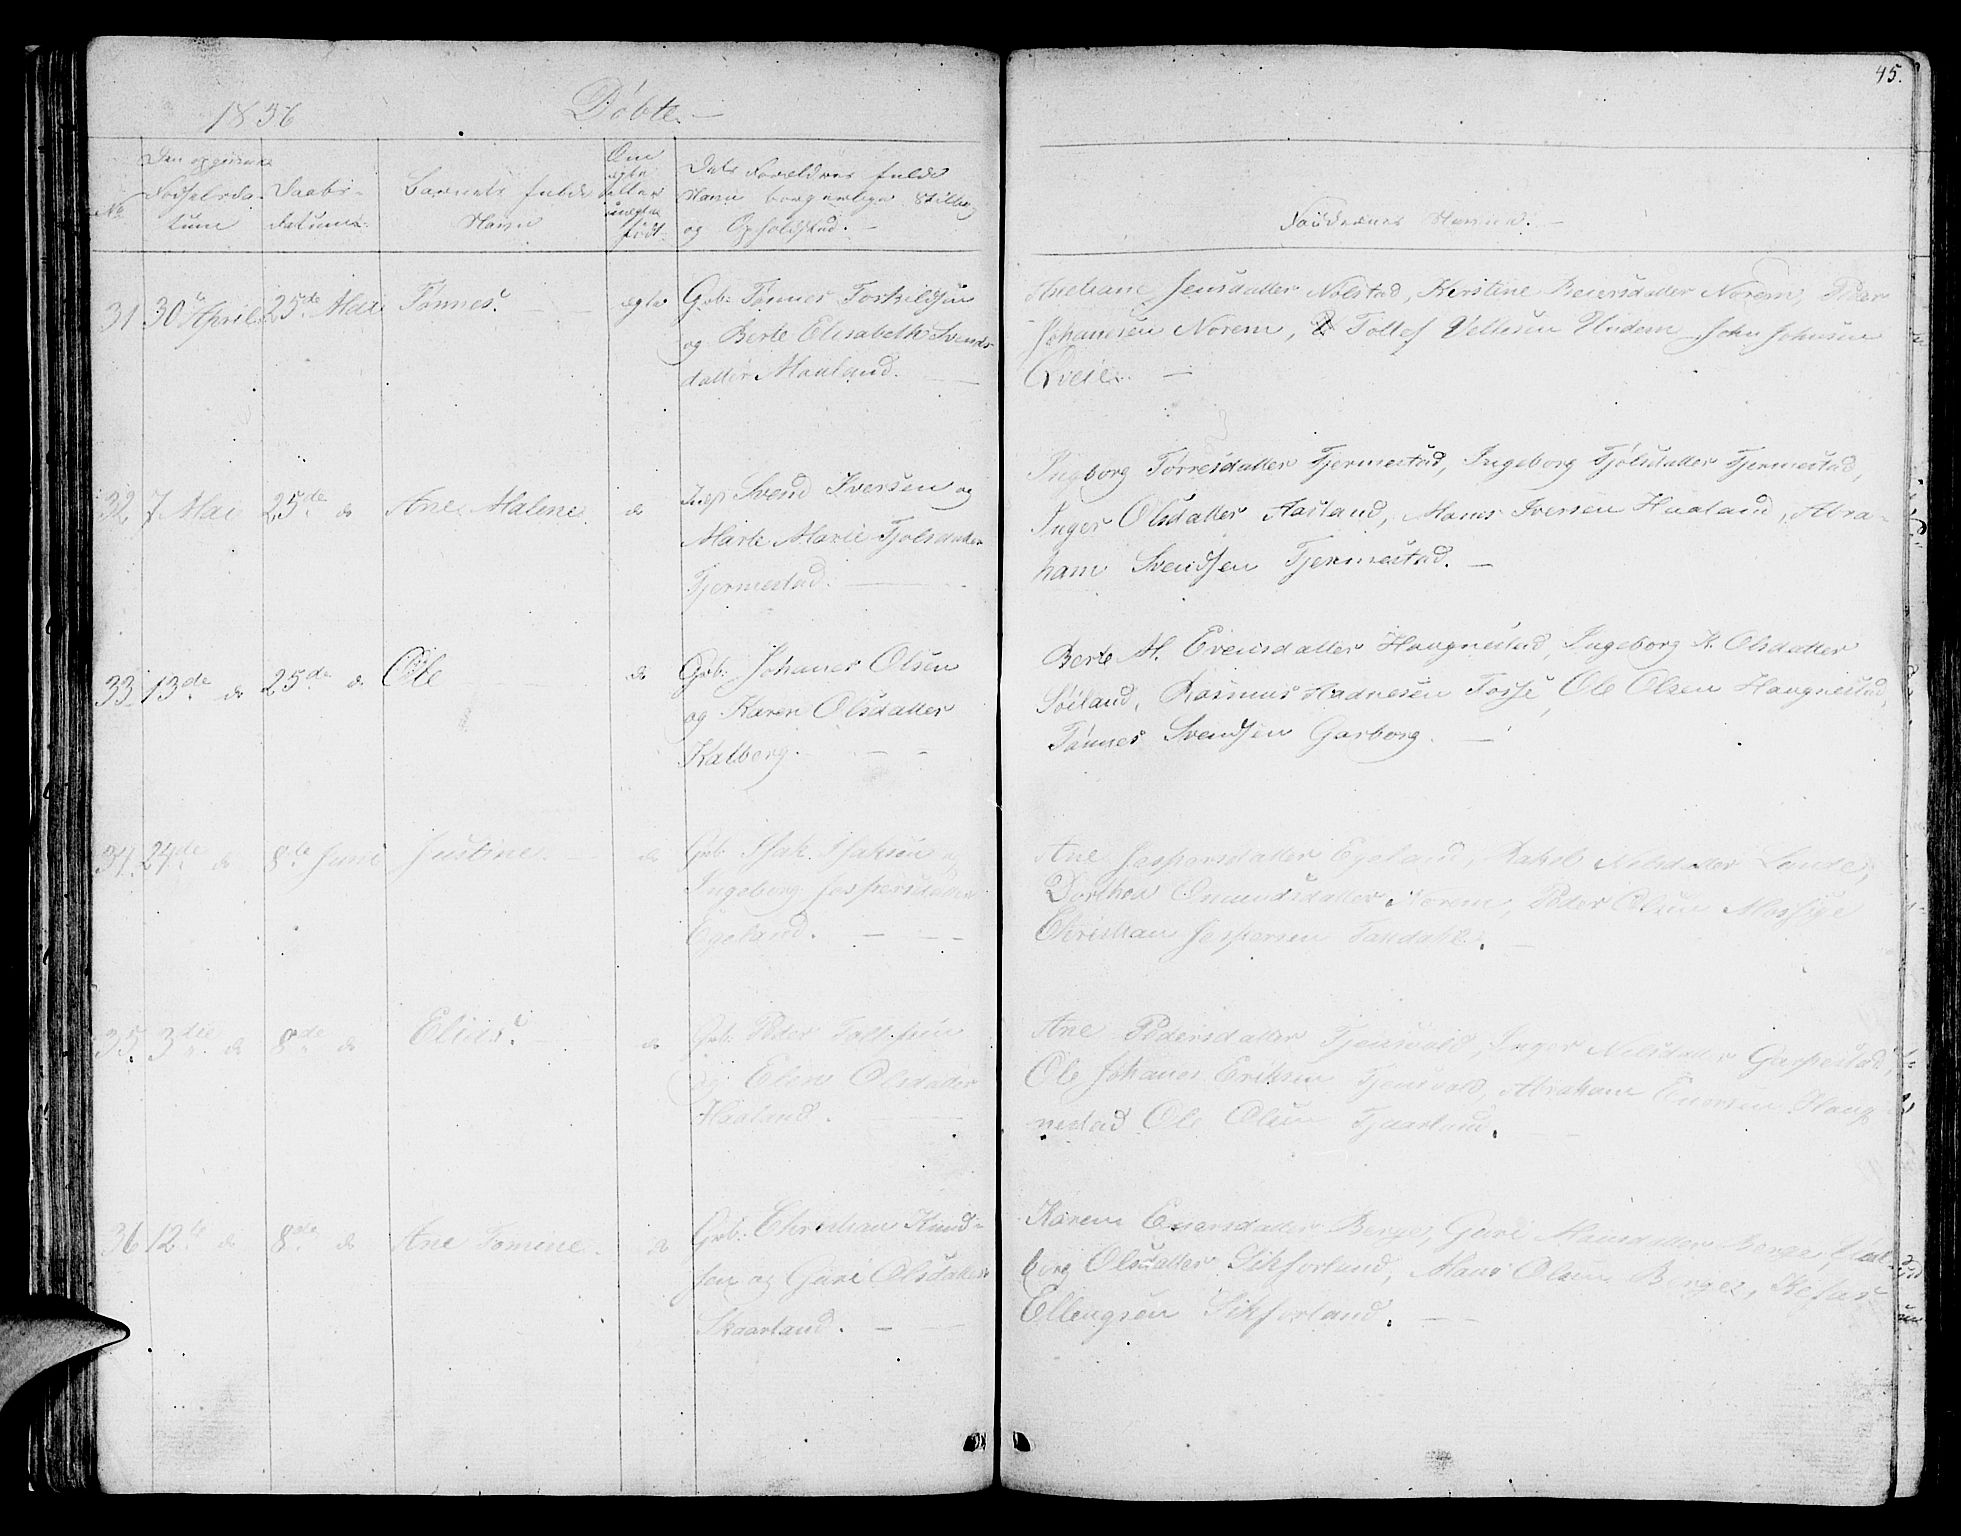 45.
1856 Døbte.
No
Den opgivne Fødselsda-
tum
Daabs-
datum
Barnets fulde
Navn
Om
ægte
eller
uægte
født
Dets Forældres fulde
Navn borgerlige Stilling
og Opholdsted.
Faddernes Navne.
31 30te April 25de Mai Tønnes. ægte Grb: Tønnes Torkildsen
og Berte Elisabeth Svends-
datter Maaland.
Jensdatter Nolstad, Kerstine Reiersdatter Norem, Peder
Johanesen Norem, Tollef Undem John Johnsen
Qveie.
32 7 Mai 25de do Ane Malene do Svend Iversen og
Marte Marie Tjølsdatter
Tjermestad.
Ingborg Tørresdatter Tjermestad, Ingeborg Tjølsdatter Tjermestad,
Inger Olsdatter Aasland, Mons Iversen Haaland, Abra-
ham Svendsen Tjermestad.
33 13de do 25de do Ole do Grb: Johanes Olsen
og Karen Olsdatter
Kalberg.
Berte M. Evensdatter Haugnestad, Ingeborg K. Olsdatter
Søiland, Rasmus Hadnesen Tosse, Ole Olsen Haugnestad,
Tønnes Svendsen Garborg.
34. 24de do 8de Juni Justine do Grb: Isak Isaksen og
Ingeborg Jespersdatter
Egeland.
Ane Jespersdatter Egeland, Rakel Nilsdatter Lende,
Dorthea Omundsdatter Norem, Peder Olsen Mossige
Christian Jespersen
35 3die do 8de do Elias. do Grb: Peder
og Elen Olsdatter
Haaland.
Ane Pedersdatter Tjensvold, Inger Nilsdatter Gaspestad,
Ole Johanes Eriksen Tjensvold, Abraham Haug-
nestad Ole Olsen Tjaarland.
36 12te do 8de do Ane Tomine. do Grb: Christian Knud-
sen og Guri Olsdatter
Skaarland.
Karen Berge, Guri Berge,
borg Olsdatter Sikforland, Mons Olsen Berge, Kefas
Ellengsen Sikforland.